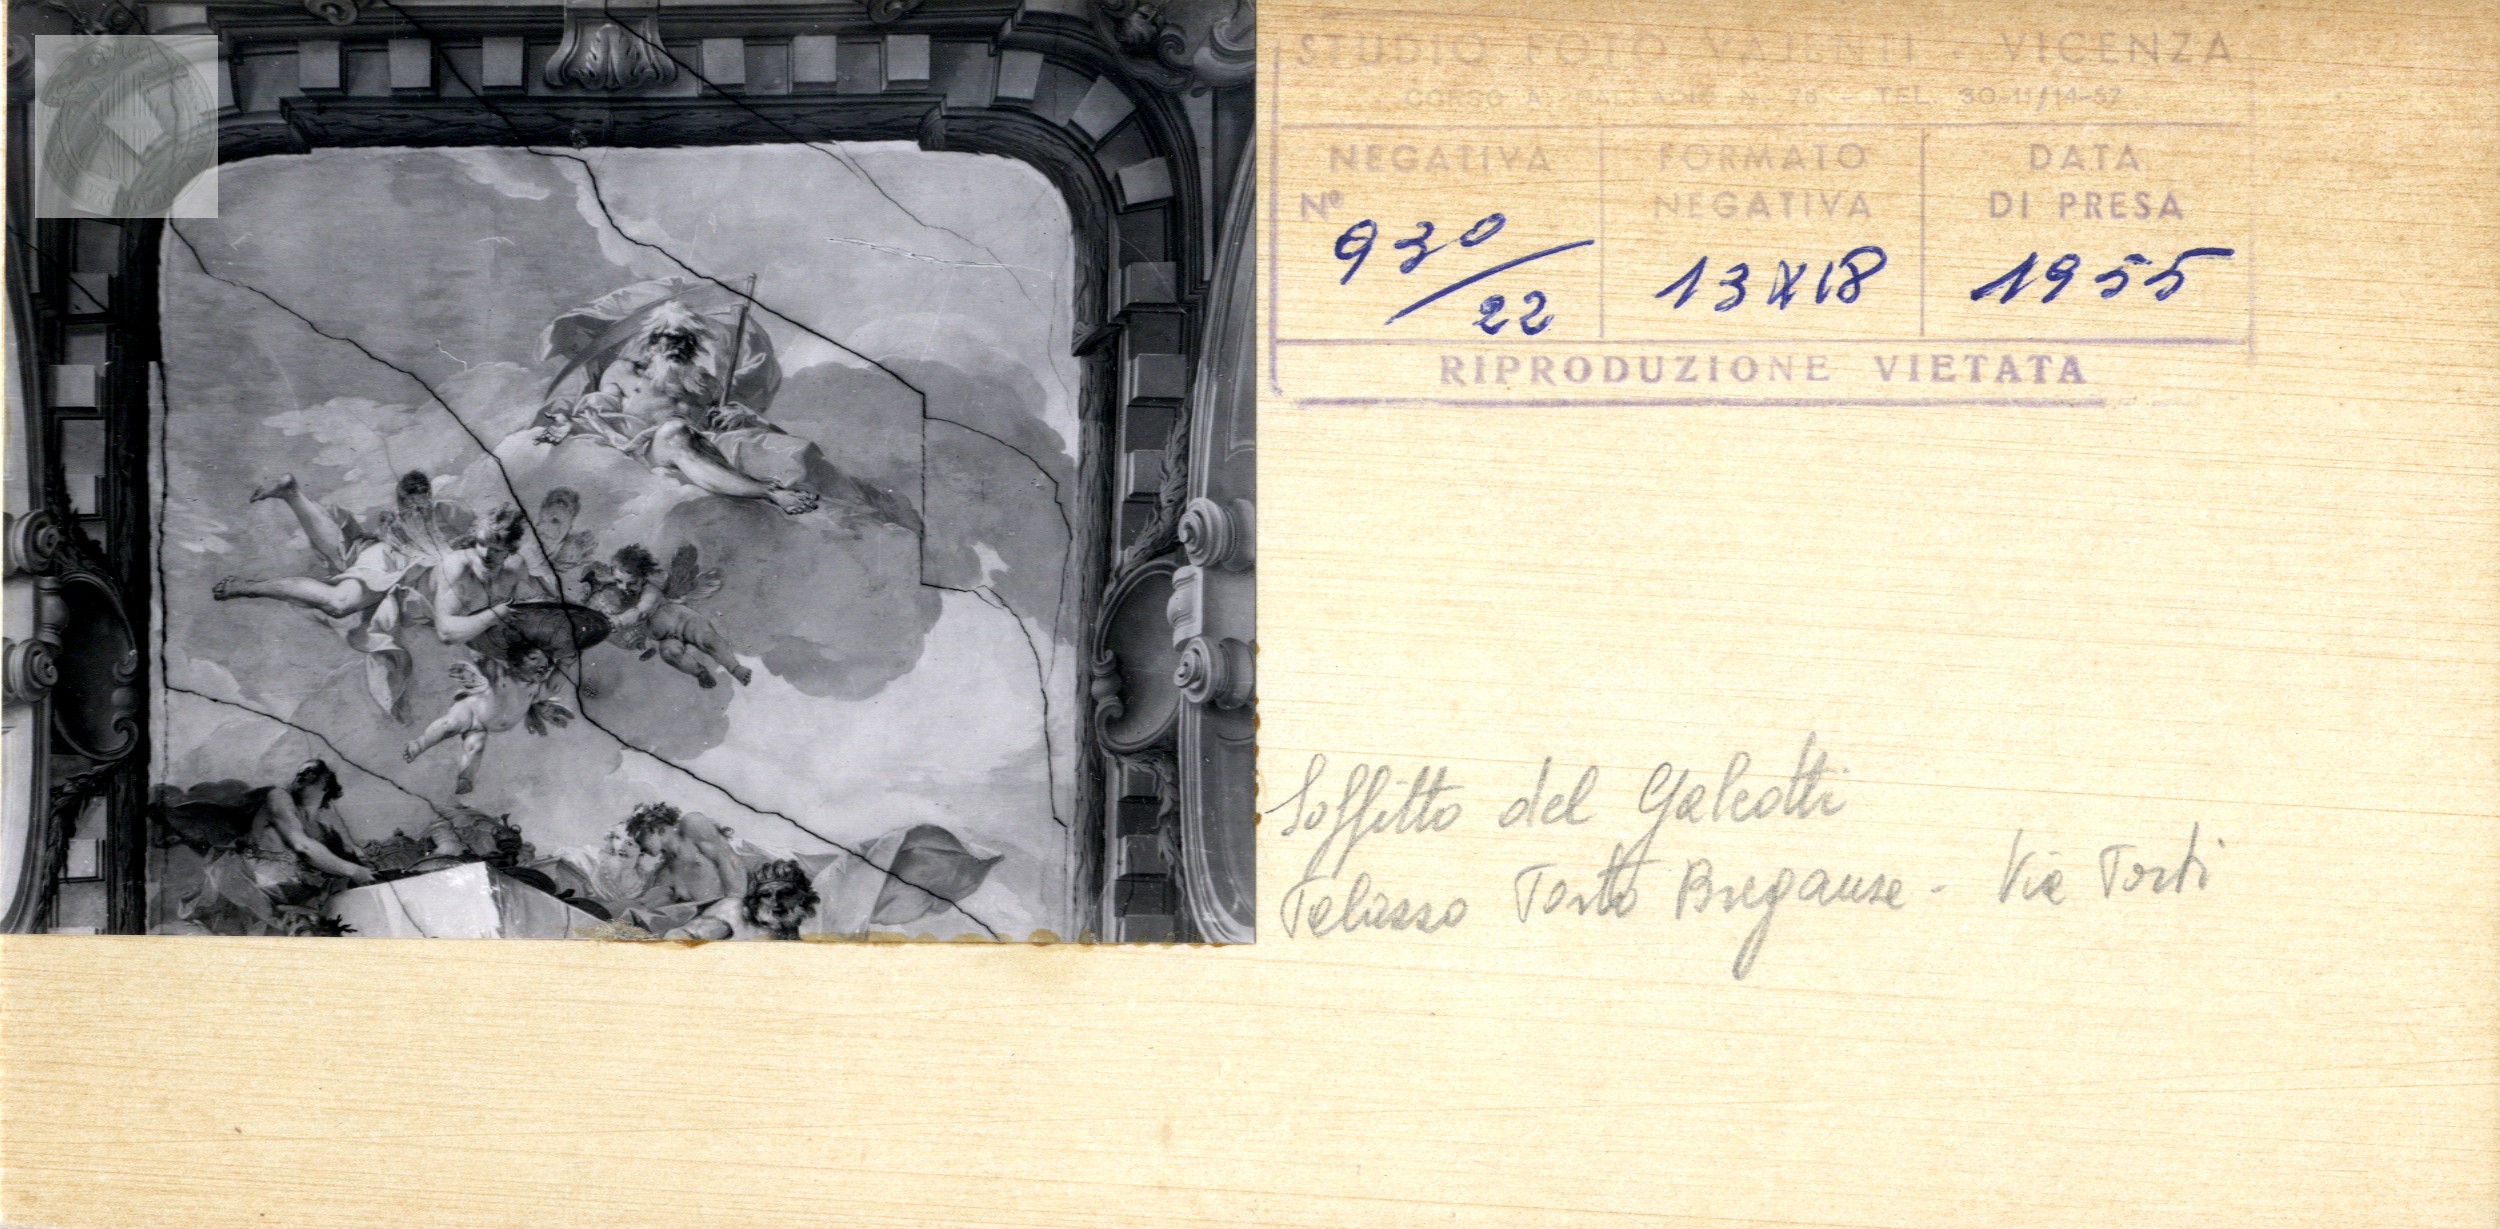 STUDIO FOTO VAJENTI - VICENZA
CORSO A. PALLADIO N. 76 - TEL. 30-11/14-57
NEGATIVA
Nº
FORMATO
NEGATIVA
DATA
DI PRESA
930/22
13x18
1955
RIPRODUZIONE VIETATA
Soffitto del Galeotti
Palazzo Porto Breganze - Via Porti